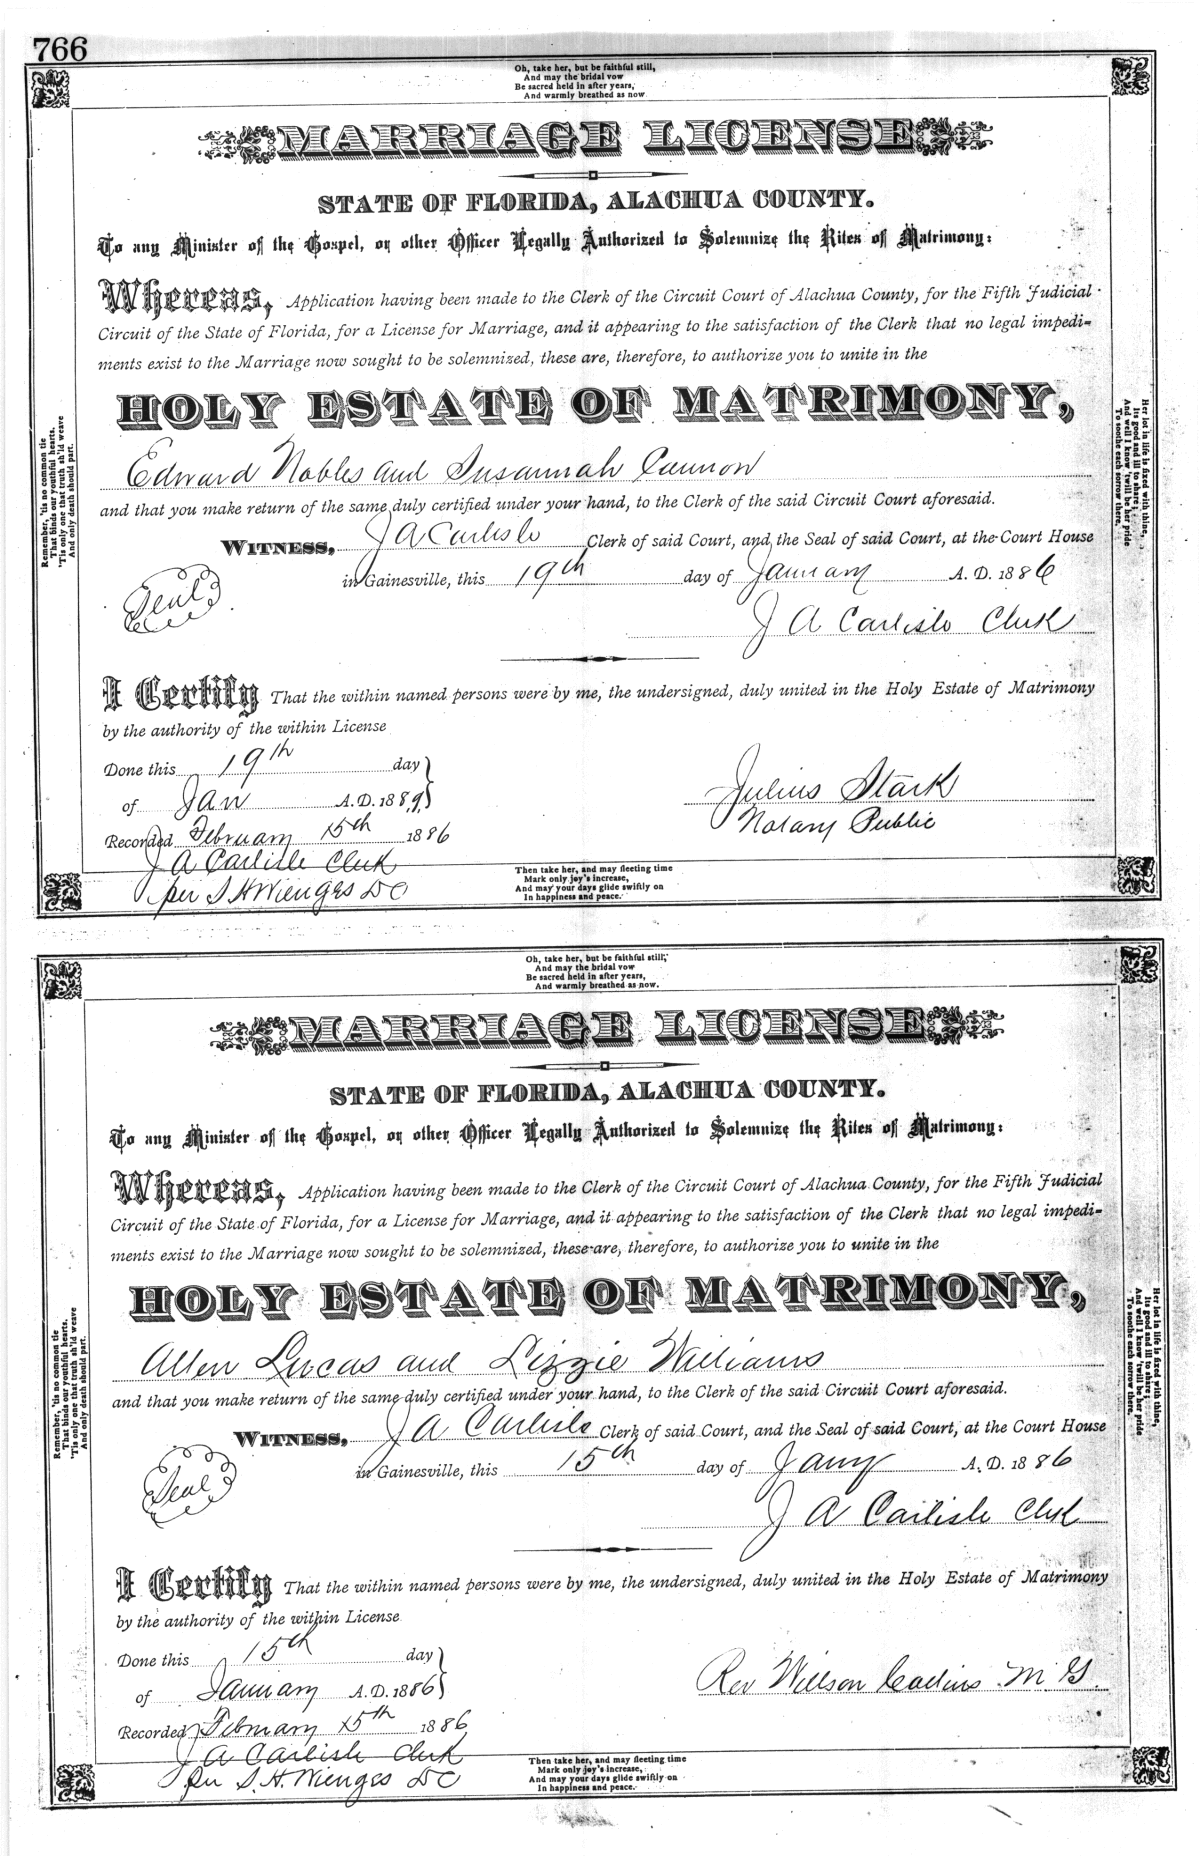 766
Oh, take her, but be faithful still,
And may the bridal vow
Be sacred held in after years,
And warmly breathed as now
MARRIAGE LICENSE
STATE OF FLORIDA, ALACHUA COUNTY.
To any Minister of the Gospel, or other Officer Legally Authorized to Solemnize the Rites of Matrimony:
Whereas, Application having been made to the Clerk of the Circuit Court of Alachua County, for the Fifth Judicial
Circuit of the State of Florida, for a License for Marriage, and it appearing to the satisfaction of the Clerk that no legal impedi-
ments exist to the Marriage now sought to be solemnized, these are, therefore, to authorize you to unite in the
HOLY ESTATE OF MATRIMONY,
Edward Nobles and Susannah Cannon
and that you make return of the same duly certified under your hand, to the Clerk of the said Circuit Court aforesaid.
WITNESS, J A Carlisle Clerk of said Court, and the Seal of said Court, at the Court House
in Gainesville, this 19th day of January A. D. 1886
Seal
J A Carlisle Clerk
I Certify That the within named persons were by me, the undersigned, duly united in the Holy Estate of Matrimony
by the authority of the within License
Done this 19th day
of Jan A.D. 1889
Julius Stark
Notary Public
Recorded February 15th 1886
J A Carlisle Clerk
per S H Wienges DC
Then take her, and may fleeting time
Mark only joy's increase,
And may your days glide swiftly on
In happiness and peace.
Remember, 'tis no common tie
That binds our youthful hearts.
'Tis only one that truth sh'ld weave
And only death should part.
Her lot in life is fixed with thine,
Its good and ill to share;
And well I know 'twill be her pride
To soothe each sorrow there.
Oh, take her, but be faithful still,
And may the bridal vow
Be sacred held in after years,
And warmly breathed as now.
MARRIAGE LICENSE
STATE OF FLORIDA, ALACHUA COUNTY.
To any Minister of the Gospel, or other Officer Legally Authorized to Solemnize the Rites of Matrimony:
Whereas, Application having been made to the Clerk of the Circuit Court of Alachua County, for the Fifth Judicial
Circuit of the State of Florida, for a License for Marriage, and it appearing to the satisfaction of the Clerk that no legal impedi-
ments exist to the Marriage now sought to be solemnized, these are, therefore, to authorize you to unite in the
HOLY ESTATE OF MATRIMONY,
Allen Lucas and Lizzie Williams
and that you make return of the same duly certified under your hand, to the Clerk of the said Circuit Court aforesaid.
WITNESS, J A Carlisle Clerk of said Court, and the Seal of said Court, at the Court House
in Gainesville, this 15th day of Jany A. D. 1886
Seal
J A Carlisle Clerk
I Certify That the within named persons were by me, the undersigned, duly united in the Holy Estate of Matrimony
by the authority of the within License
Done this 15th day
of January A.D. 1886
Rev Willson M. G.
Recorded February 15th 1886
J A Carlisle Clerk
per S. H. Wienges DC
Then take her, and may fleeting time
Mark only joy's increase,
And may your days glide swiftly on
In happiness and peace.
Remember, 'tis no common tie
That binds our youthful hearts.
'Tis only one that truth sh'ld weave
And only death should part.
Her lot in life is fixed with thine,
Its good and ill to share;
And well I know 'twill be her pride
To soothe each sorrow there.